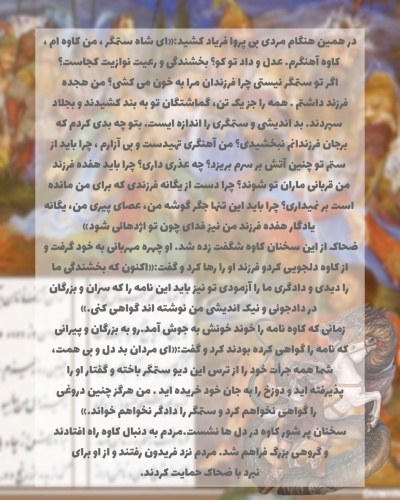 در همین هنگام مردی بی پروا فریاد کشید:«ای شاه ستمگر ، من کاوه ام ،
کاوه آهنگرم. عدل و داد تو کو؟ بخشندگی و رعیت نوازیت کجاست؟
اگر تو ستمگر نیستی چرا فرزندان مرا به خون می کشی؟ من هجده
فرزند داشتم . همه را جز یک تن، گماشتگان تو به بند کشیدند و بجلاد
سپردند. بد اندیشی و ستمگری را اندازه ایست. بتو چه بدی کردم که
برجان فرزندانم نبخشیدی؟ من آهنگری تهیدست و بی آزارم ، چرا باید از
ستم تو چنین آتش بر سرم بریزد؟ چه عذری داری؟ چرا باید هفده فرزند
من قربانی ماران تو شوند؟ چرا دست از یگانه فرزندی که برای من مانده
است بر نمیداری؟ چرا باید این تنها جگر گوشه من، عصای پیری من، یگانه
یادگار هفده فرزند من نیز فدای چون تو اژدهائی شود»
ضحاک از این سخنان کاوه شگفت زده شد. او چهره مهربانی به خود گرفت و
از کاوه دلجویی کردو فرزند او را رها کرد و گفت:«اکنون که بخشندگی ما
را دیدی و دادگری ما را آزمودی تو نیز باید این نامه را که سران و بزرگان
در دادجونی و نیک اندیشی من نوشته اند گواهی کنی.»
زمانی که کاوه نامه را خوند خونش به جوش آمد.رو به بزرگان و پیرانی
که نامه را گواهی کرده بودند کرد و گفت:«ای مردان بد دل و بی همت،
شما همه جرأت خود را از ترس این دیو ستمگر باخته و گفتار او را
پذیرفته اید و دوزخ را به جان خود خریده اید . من هرگز چنین دروغی
را گواهی نخواهم کرد و ستمگر را دادگر نخواهم خواند.»
سخنان پر شور کاوه در دل ها نشست.مردم به دنبال کاوه راه افتادند
و گروهی بزرگ فراهم شد. مردم نزد فریدون رفتند و از او برای
نبرد با ضحاک حمایت کردند.